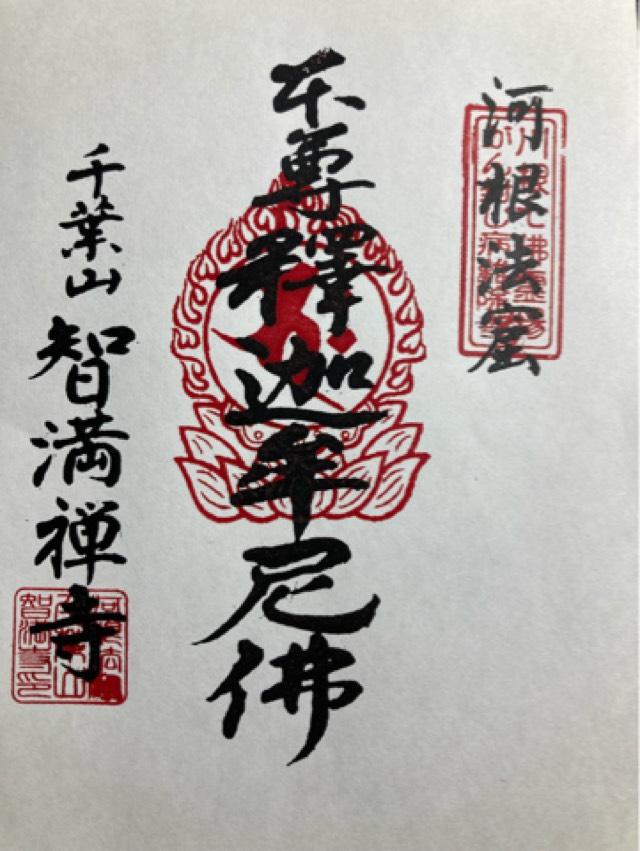 河根法窟
本尊釋迦牟尼佛
千葉山 智満禅寺